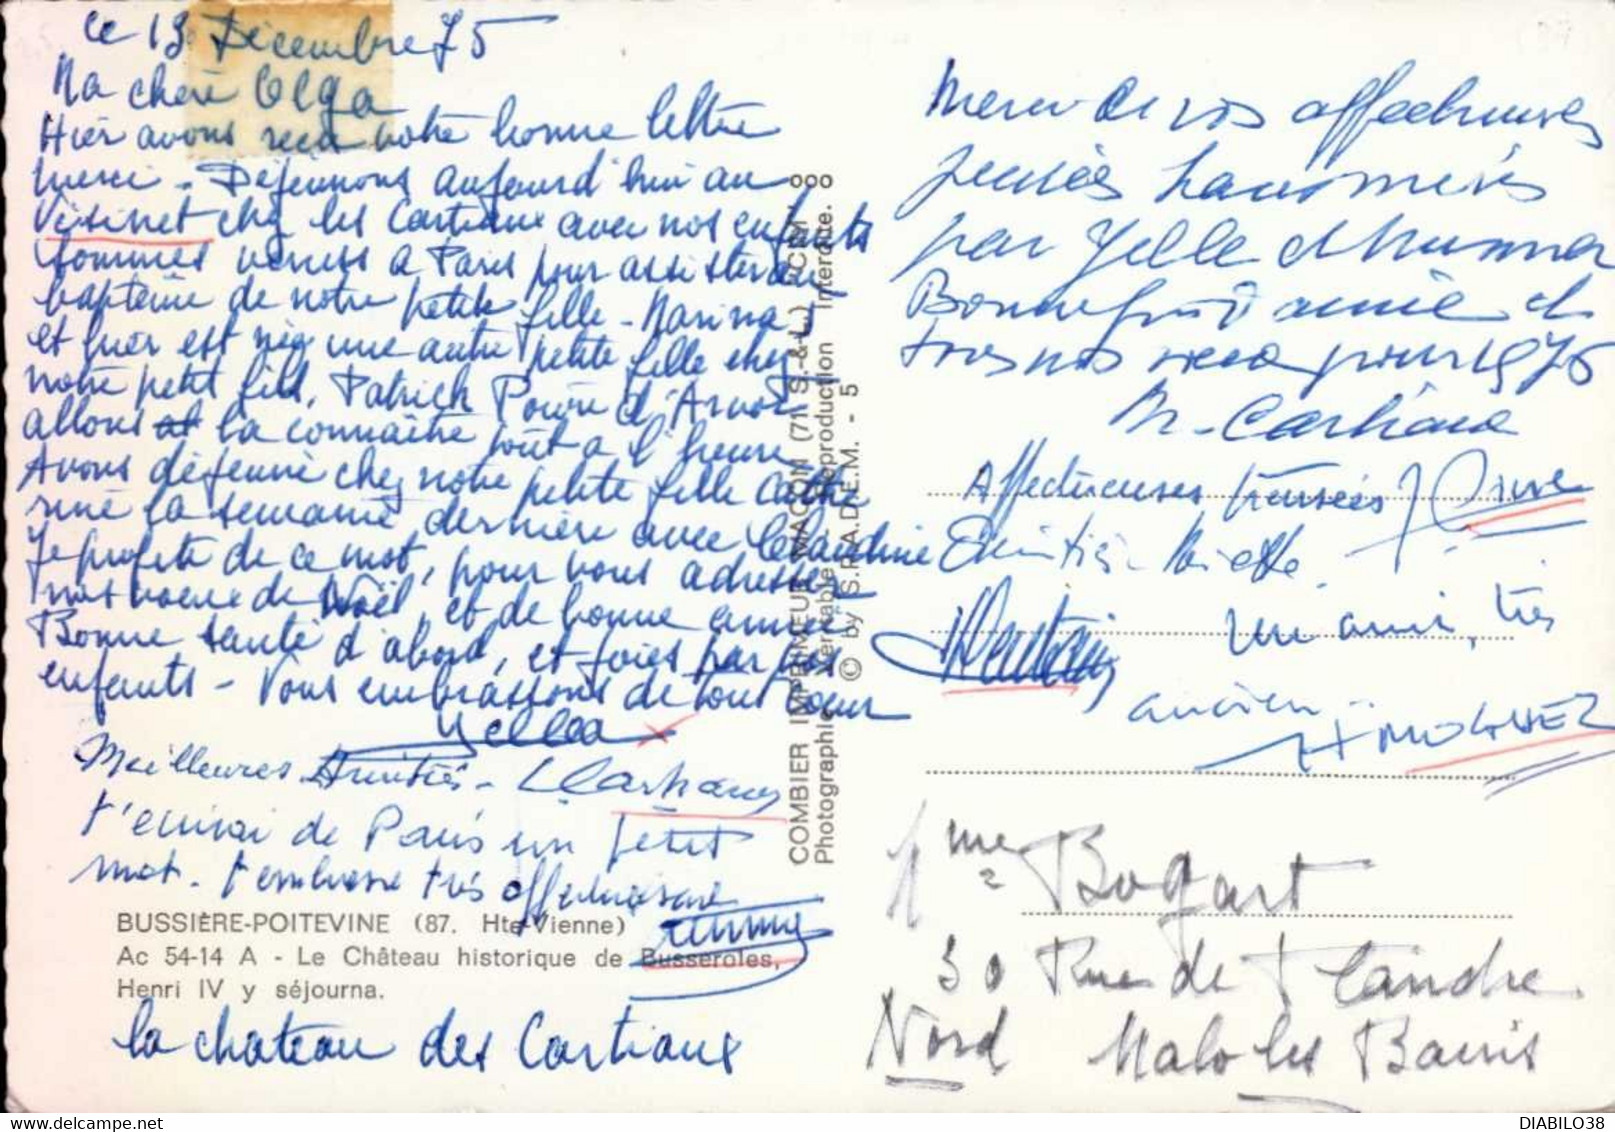 Ce 13 Décembre 75
Ma chère Olga
Hier avons reçu votre bonne lettre
merci - Déjeunons aujourd'hui au
Vésinet chez les Cartiaux avec nos enfants
Sommes venus à Paris pour assister au
baptême de notre petite fille - Marina
et hier est née une autre petite fille chez
notre petit fils, Patrick Poivre d'Arvor
allons la connaître tout à l'heure
Avons déjeuné chez notre petite fille Cathe
rine la semaine dernière avec Claudine
Je profite de ce mot, pour vous adresser
nos voeux de Noël, et de bonne année
Bonne santé d'abord, et joies par vos
enfants - Vous embrassons de tout coeur
Yella
Meilleures Amitiés - Cartiaux
J'écrirai de Paris un petit
mot. J'embrasse très affectueusement
BUSSIÈRE-POITEVINE (87. Hte-Vienne)
Ac 54-14 A - Le Château historique de Busseroles,
Henri IV y séjourna.
la chateau des Cartiaux
COMBIER IMPRIMEUR MACON (71 S.-&-L.) "CIM"
Photographie Véritable Reproduction interdite.
© by S.P.A.D.E.M. - 5
Merci de vos affectueuses
pensées transmises
par Yella et
Bonne fin d'année et
tous nos voeux pour 1975
M. Cartiaux
Affectueuses pensées
Amitiés
un ami, très
ancien
Mme Bogart
30 Rue de Flandre
Nord Malo les Bains
DIABILO38